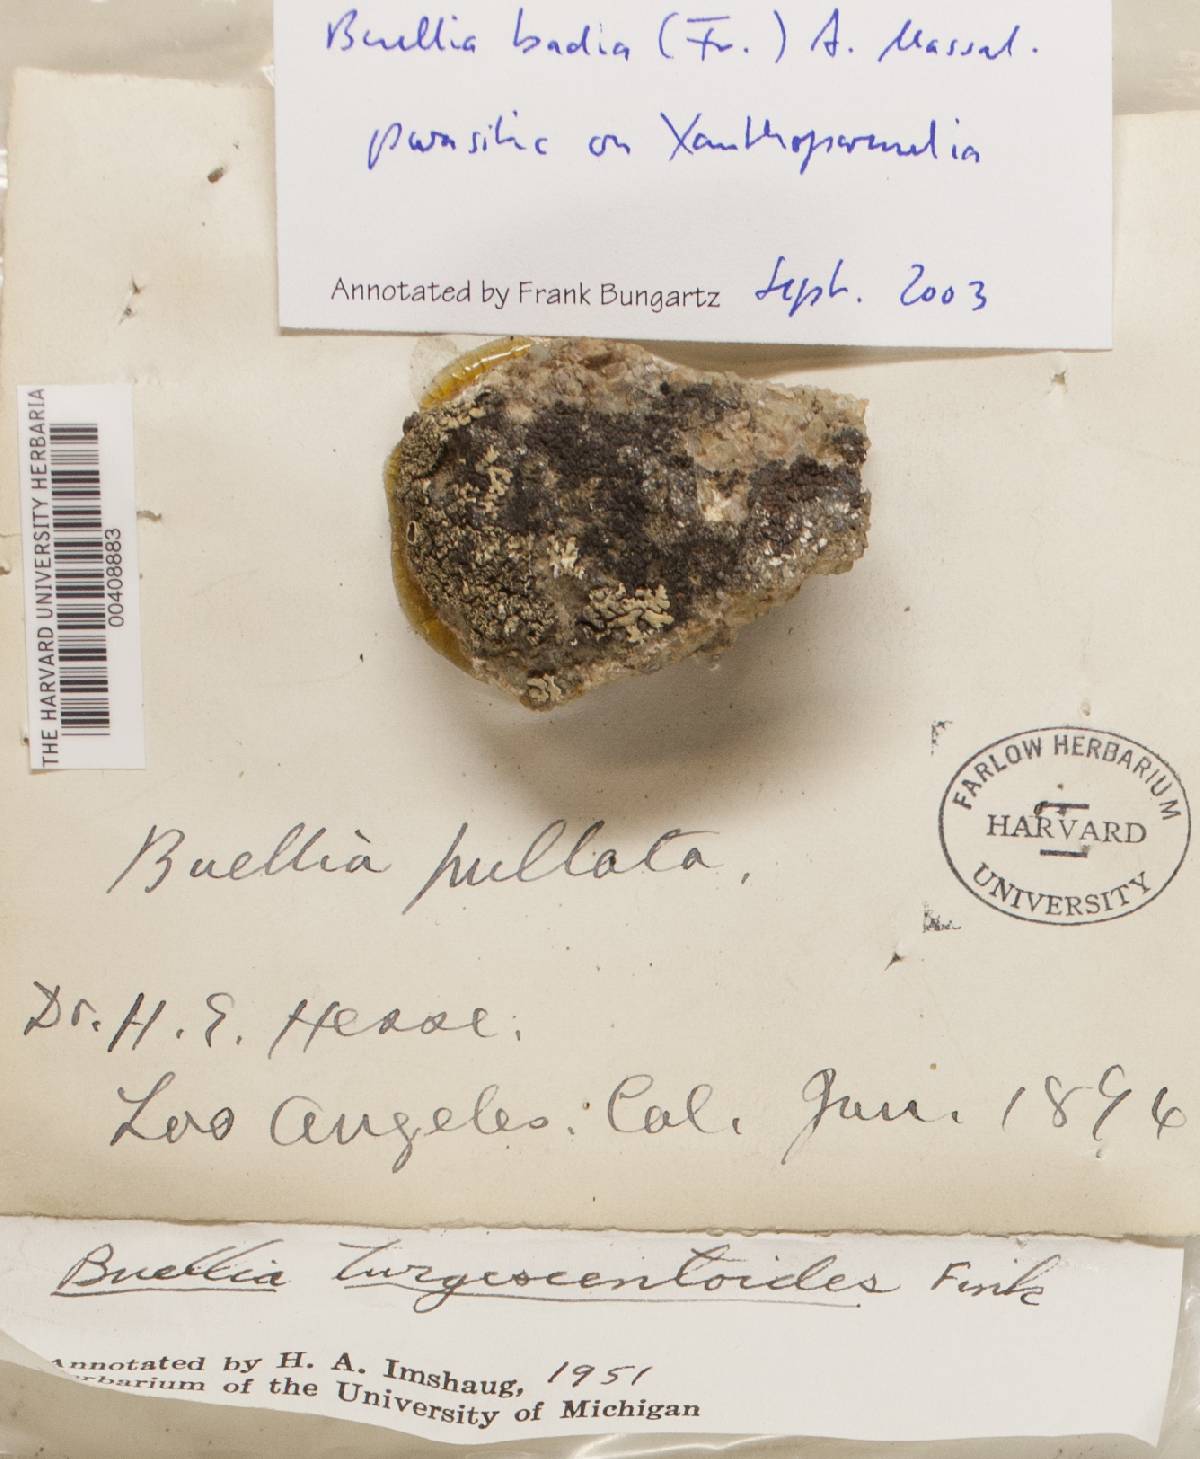 Buellia badia (Fr.) A. Massal.
parasitic on Xanthoparmelia
Annotated by Frank Bungartz Sept. 2003
THE HARVARD UNIVERSITY HERBARIA
00408883
FARLOW HERBARIUM
HARVARD
UNIVERSITY
Buellia pullata.
Dr. H. E. Hasse.
Los Angeles. Cal. Jan. 1896
Buellia turgescentoides Fink
Annotated by H. A. Imshaug, 1951
Herbarium of the University of Michigan